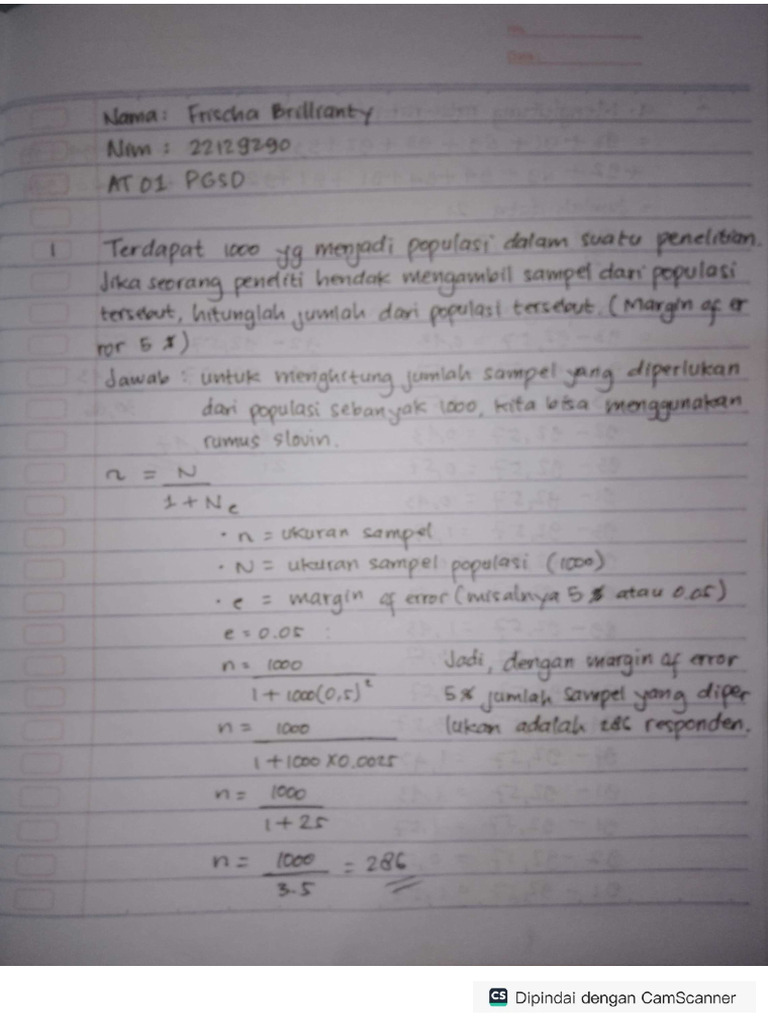 No.
Date:
Nama: Friscka Brillranty
Nim : 22129290
AT 01 PGSD
1 Terdapat 1000 yg menjadi populasi dalam suatu penelitian.
Jika seorang peneliti hendak mengambil sampel dari populasi
tersebut, hitunglah jumlah dari populasi tersebut. (Margin of er
ror 5 %)
Jawab : untuk menghitung jumlah sampel yang diperlukan
dari populasi sebanyak 1000, kita bisa menggunakan
rumus slovin.
n = N
1 + Ne
• n = ukuran sampel
• N = ukuran sampel populasi (1000)
• e = margin of error (misalnya 5 % atau 0.05)
e = 0.05 :
n = 1000
1 + 1000(0,5)²
n = 1000
1 + 1000 X 0.0025
n = 1000
1 + 25
n = 1000 = 286
3.5
Jadi, dengan margin of error
5% jumlah sampel yang diper
lukan adalah 286 responden.
CS Dipindai dengan CamScanner